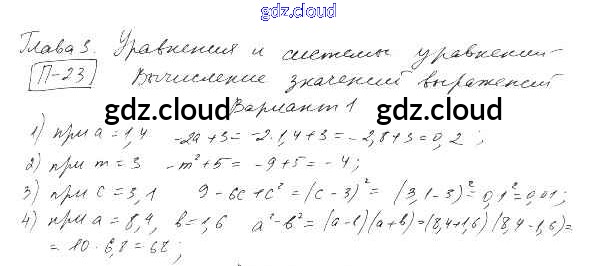 gdz.cloud
Глава 3. Уравнения и системы уравнений
П-23 Вычисление значений выражений
gdz.cloud gdz.cloud
Вариант 1
1) при a = 1,4 -2a+3 = -2·1,4+3 = -2,8+3 = 0,2;
2) при m = 3 -m²+5 = -9+5 = -4;
3) при c = 3,1 9-6c+c² = (c-3)² = (3,1-3)² = 0,1² = 0,01;
4) при a = 8,4, b = 1,6 a²-b² = (a-b)(a+b) = (8,4+1,6)(8,4-1,6) =
= 10·6,8 = 68;
gdz.cloud